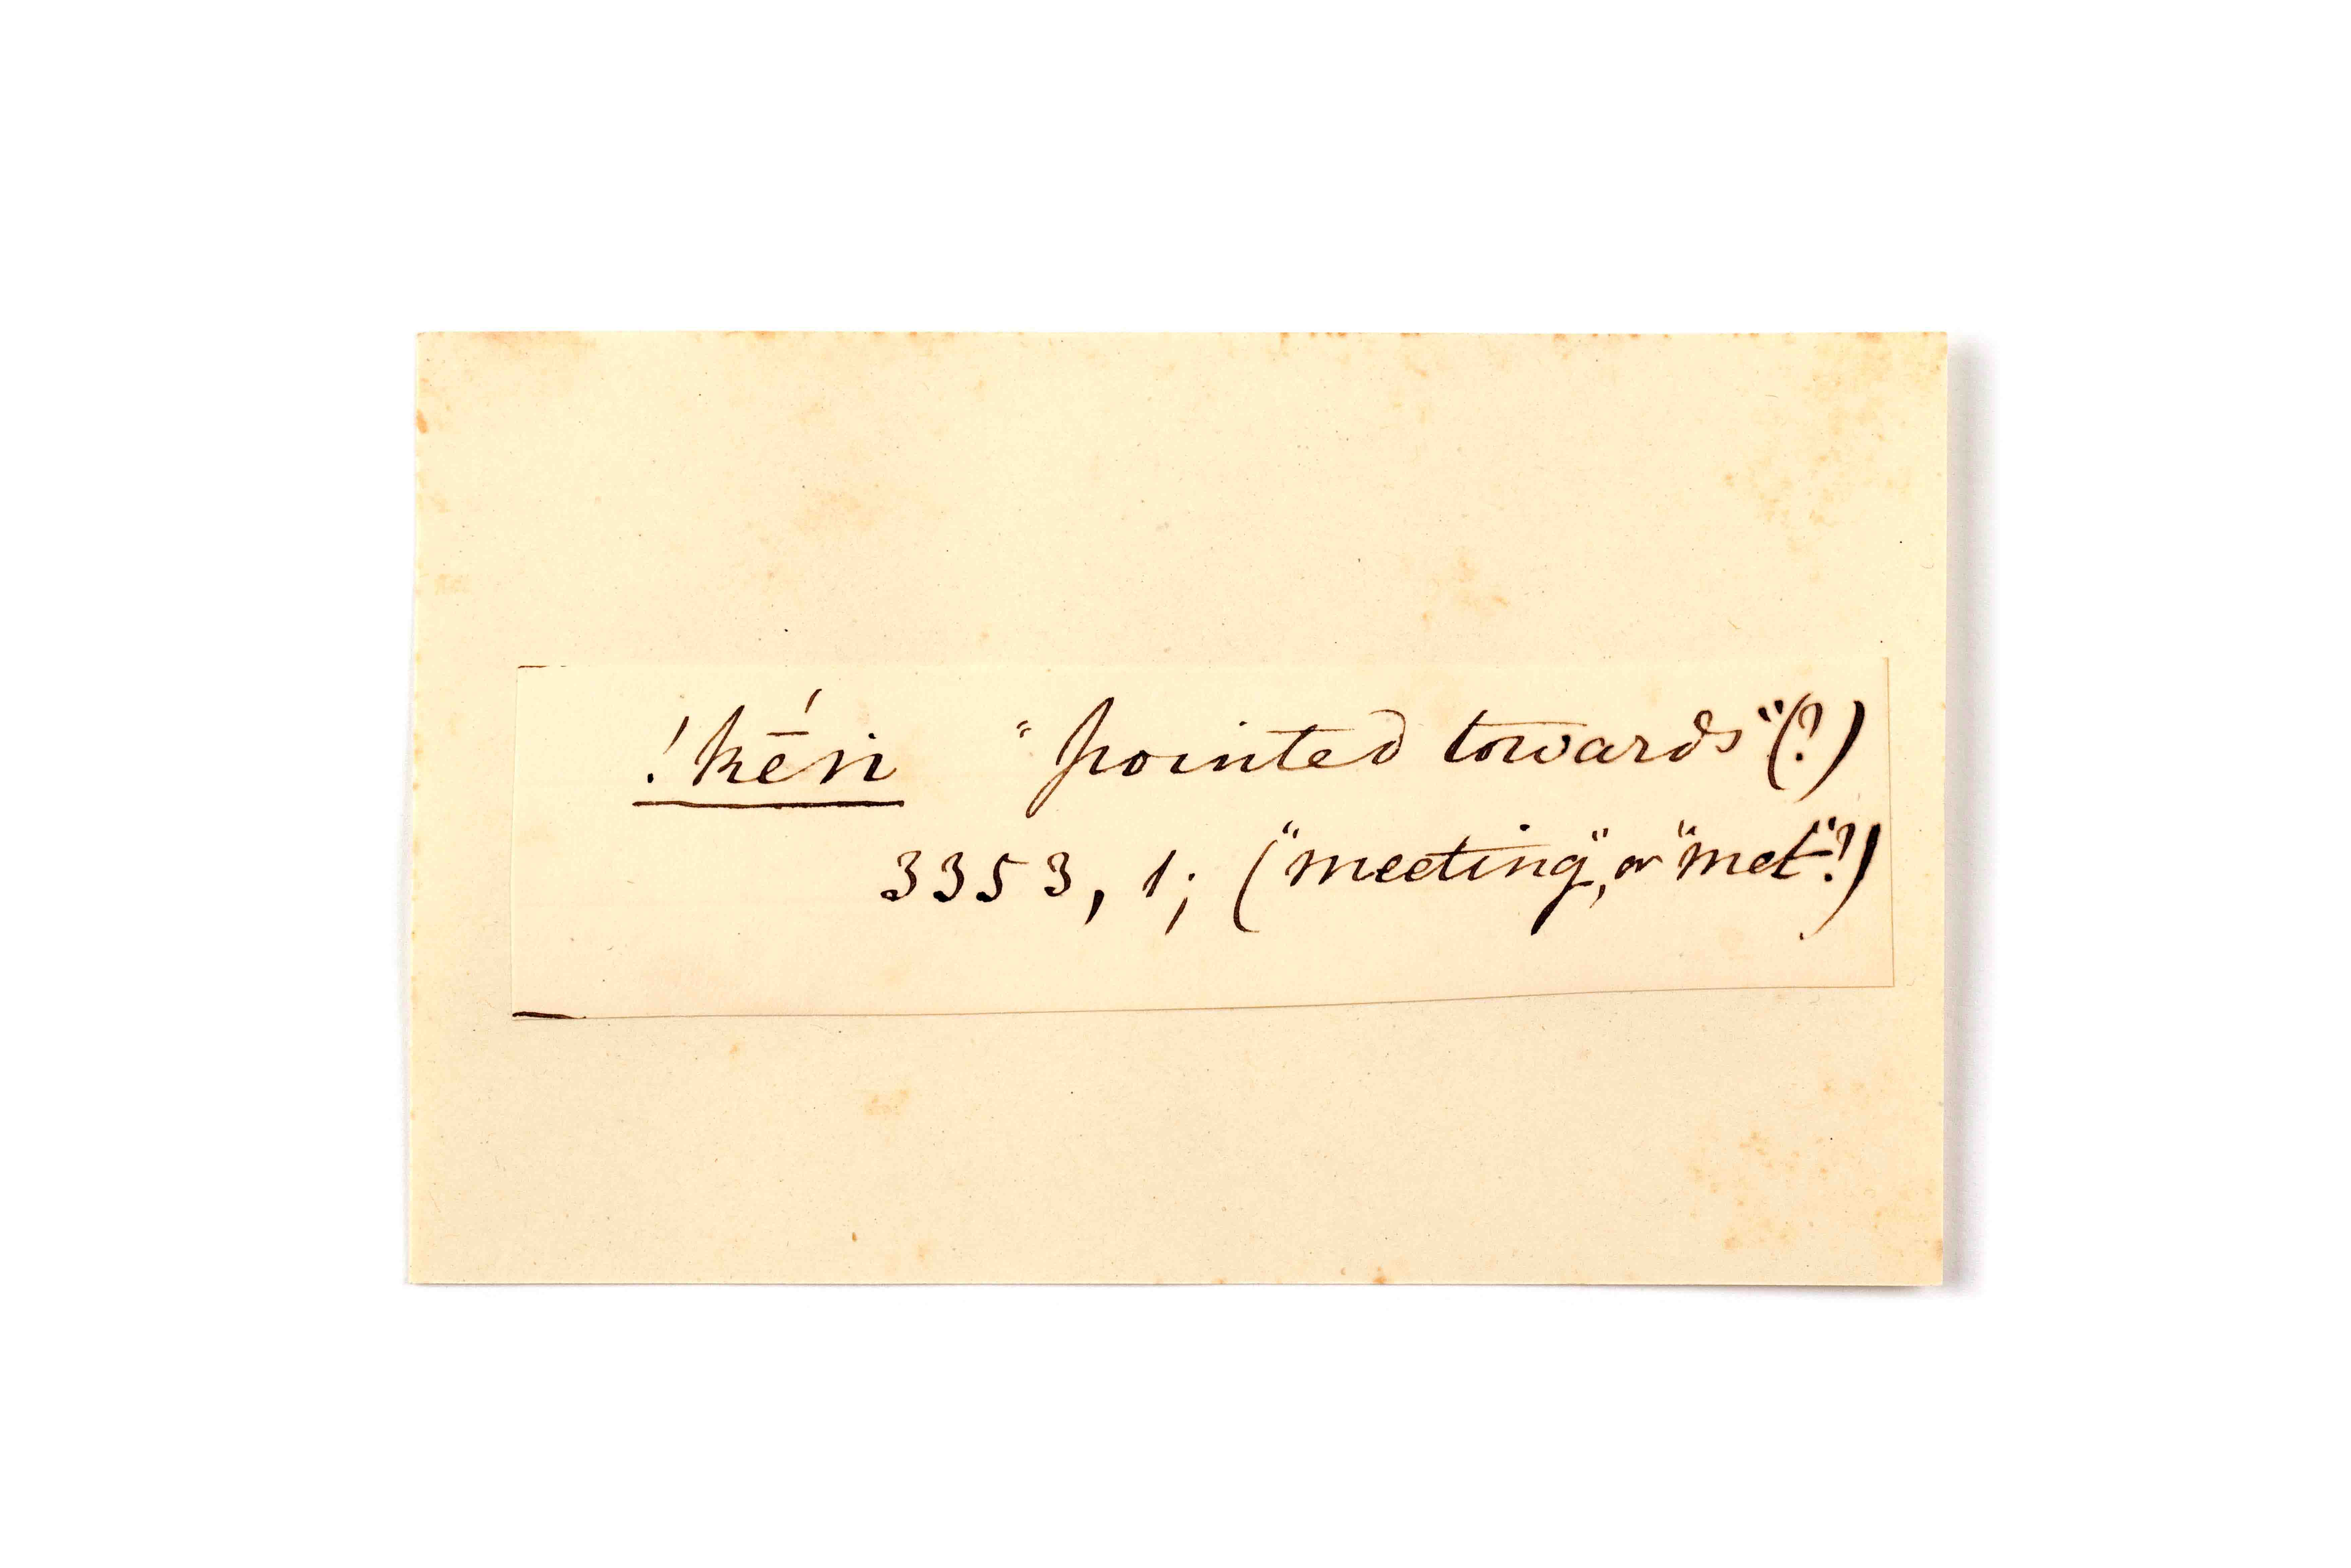 !kḗn "pointed towards"(?)
3353, 1; ("meeting", or "met"?)